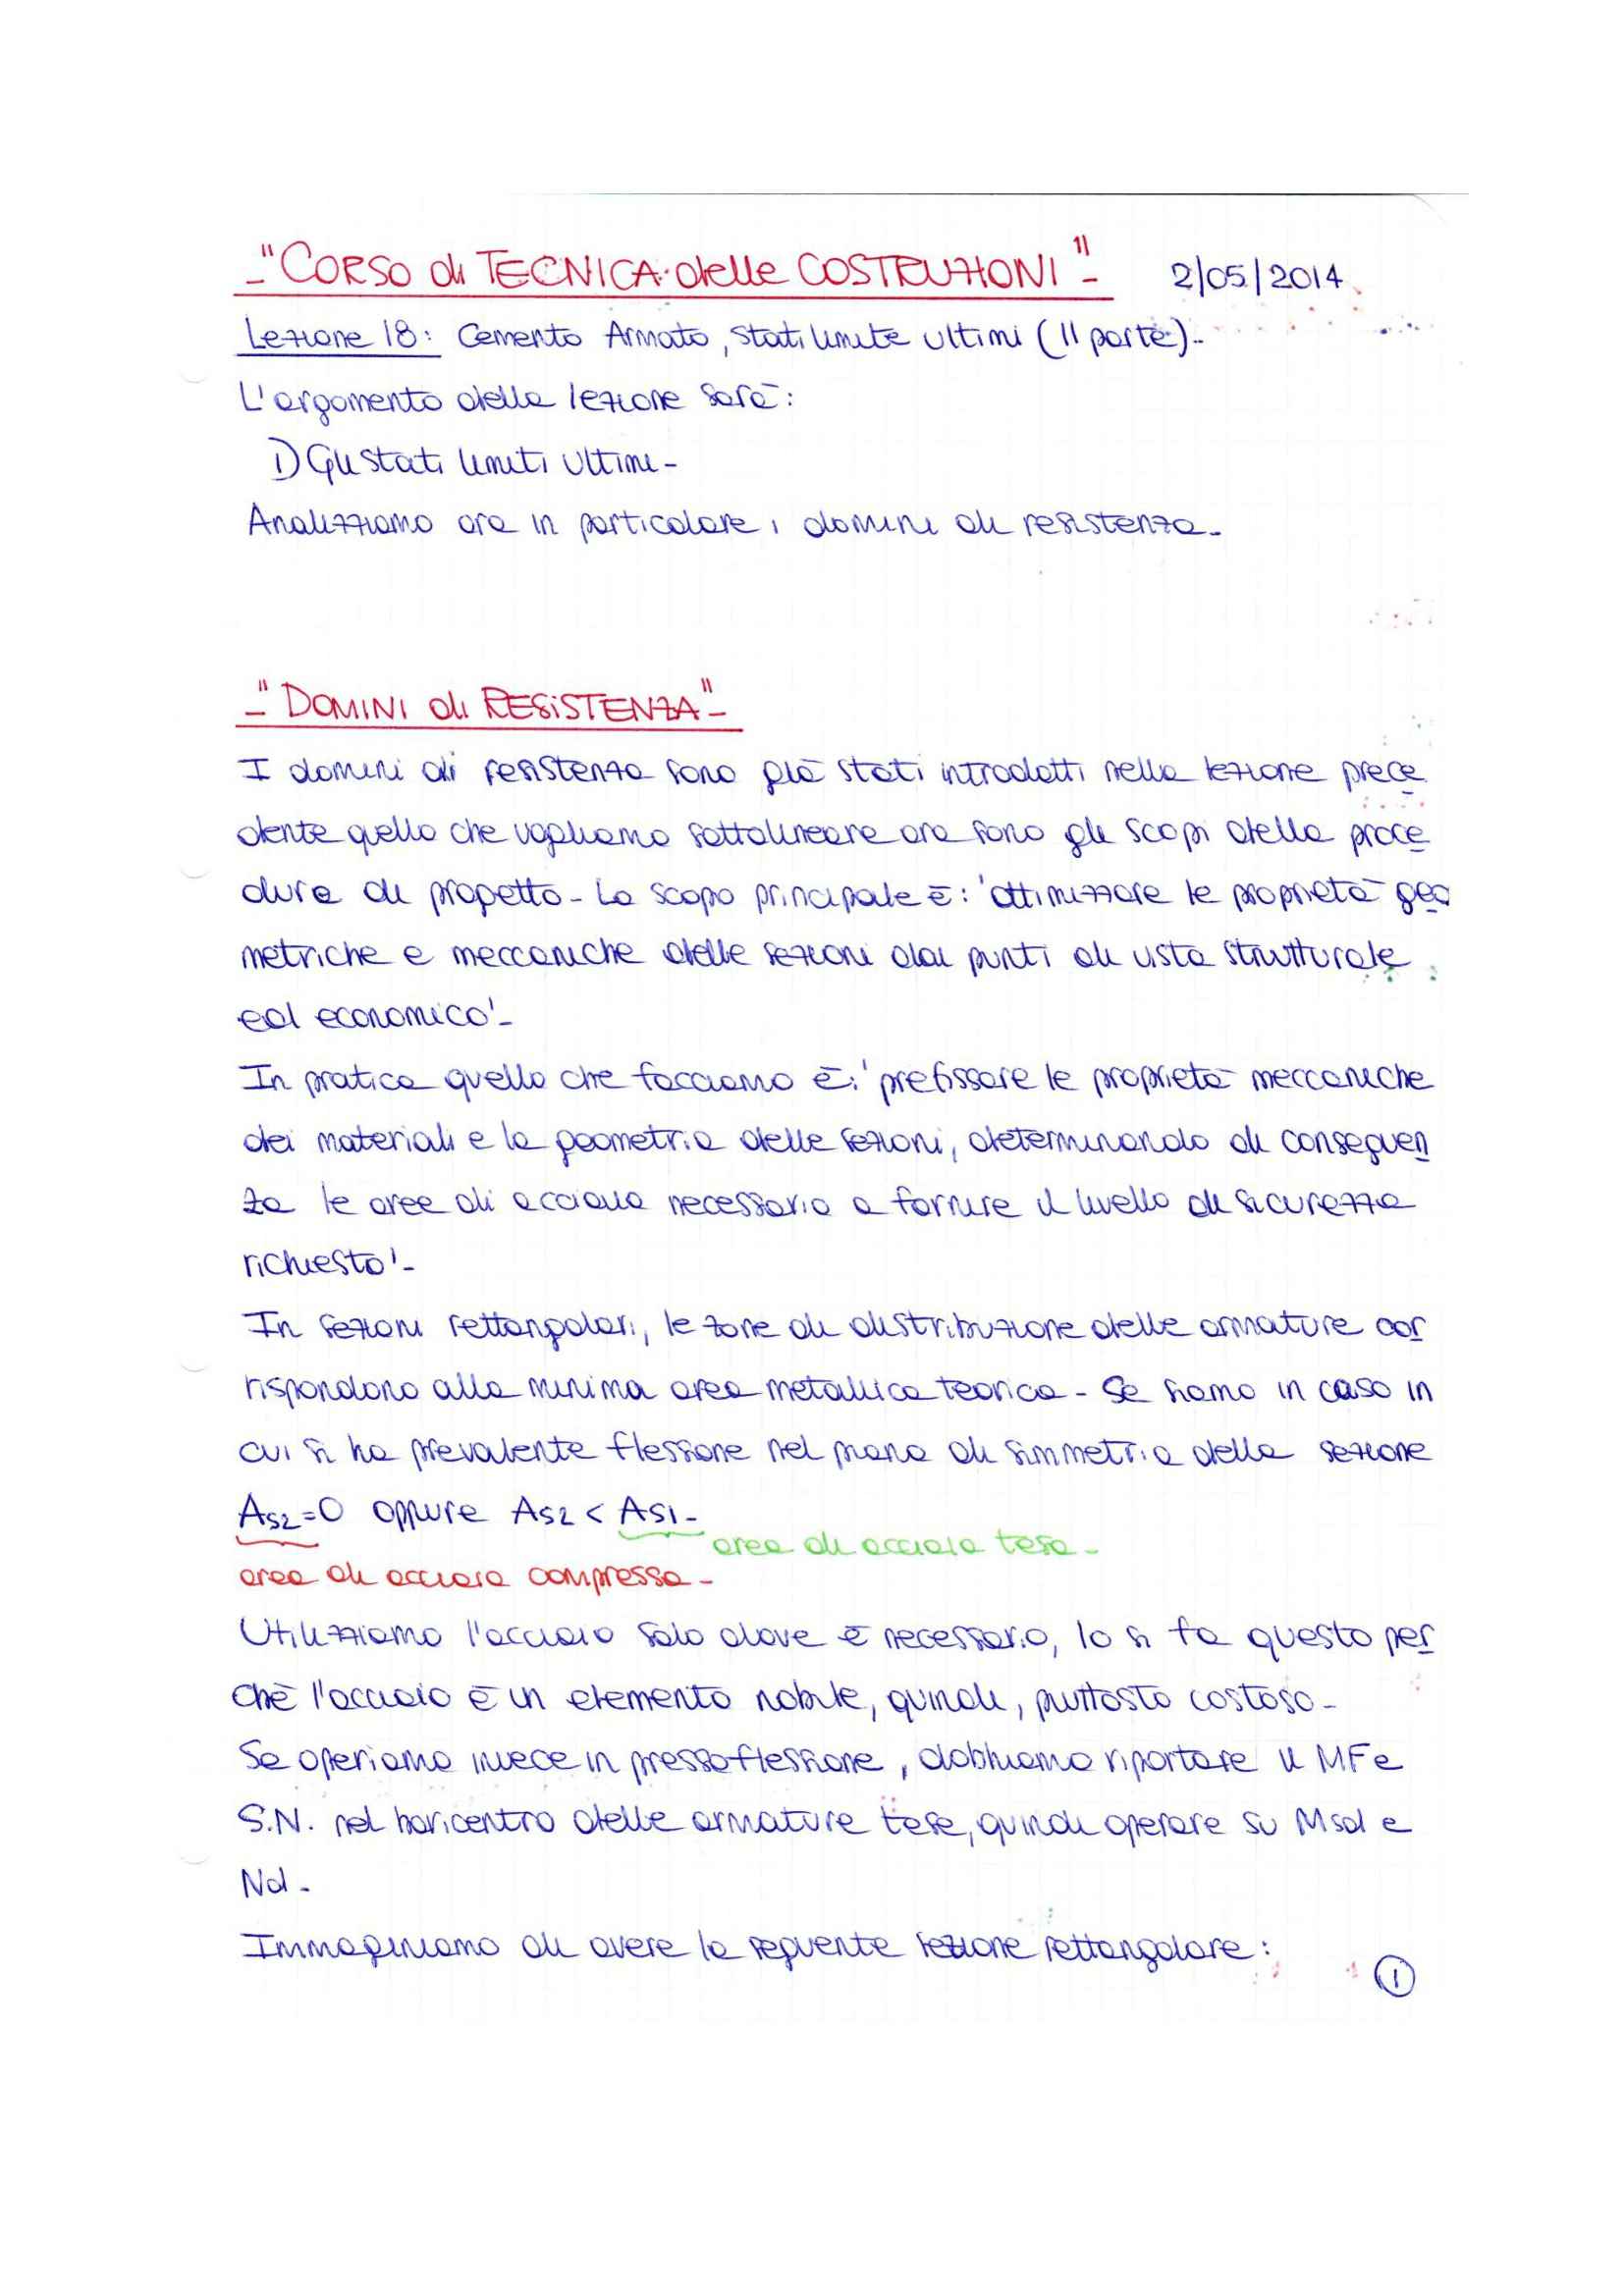 -"CORSO di TECNICA delle COSTRUZIONI"- 2/05/2014
Lezione 18: Cemento Armato, stati limite ultimi (II parte).-
L'argomento della lezione sarà:
1) Gli stati limiti ultimi-
Analizziamo ora in particolare i domini di resistenza-
-"DOMINI di RESISTENZA"-
I domini di resistenza sono già stati introdotti nella lezione prece
dente quello che vogliamo sottolineare ora sono gli scopi della proce
dura di progetto- Lo scopo principale è: 'ottimizzare le proprietà geo
metriche e meccaniche delle sezioni dai punti di vista strutturale
ed economico'-
In pratica quello che facciamo è: 'prefissare le proprietà meccaniche
dei materiali e la geometria delle sezioni, determinando di conseguen
za le aree di acciaio necessario a fornire il livello di sicurezza
richiesto'-
In sezioni rettangolari, le zone di distribuzione delle armature cor
rispondono alla minima area metallica teorica- Se siamo in caso in
cui si ha prevalente flessione nel piano di simmetria della sezione
As2=0 oppure As2 < As1-
area di acciaio tesa-
area di acciaio compressa-
Utilizziamo l'acciaio solo dove è necessario, lo si fa questo per
chè l'acciaio è un elemento nobile, quindi, piuttosto costoso-
Se operiamo invece in pressoflessione, dobbiamo riportare il MF e
S.N. nel baricentro delle armature tese, quindi operare su Msd e
Nd-
Immaginiamo di avere la seguente sezione rettangolare:
1